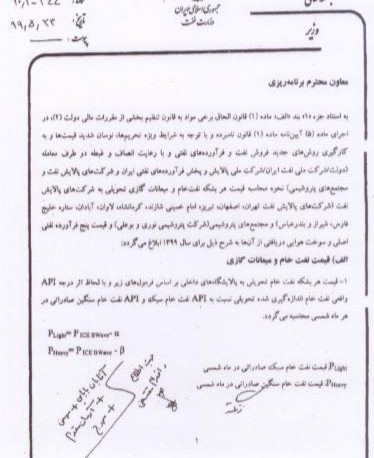 جمهوری اسلامی ایران
وزارت نفت
وزیر
تاریخ: ۹۹،۵،۲۳
پیوست:
معاون محترم برنامه‌ریزی
به استناد جزء «۱» بند «الف» ماده (۱) قانون الحاق برخی مواد به قانون تنظیم بخشی از مقررات مالی دولت (۲)، در
اجرای ماده (۵) آیین‌نامه ماده (۱) قانون نامبرده و با توجه به شرایط ویژه تحریم‌ها، نوسان شدید قیمت‌ها و به
کارگیری روش‌های جدید فروش نفت و فرآورده‌های نفتی و با رعایت انصاف و غبطه دو طرف معامله
(دولت/شرکت ملی نفت ایران/شرکت ملی پالایش و پخش فرآورده‌های نفتی ایران و شرکت‌های پالایش نفت و
مجتمع‌های پتروشیمی) نحوه محاسبه قیمت هر بشکه نفت‌خام و میعانات گازی تحویلی به شرکت‌های پالایش
نفت (شرکت‌های پالایش نفت تهران، اصفهان، تبریز، امام خمینی شازند، کرمانشاه، لاوان، آبادان، ستاره خلیج
فارس، شیراز و بندرعباس) و مجتمع‌های پتروشیمی (شرکت پتروشیمی نوری و بوعلی) و قیمت پنج فرآورده نفتی
اصلی و سوخت هوایی دریافتی از آن‌ها به شرح ذیل برای سال ۱۳۹۹ ابلاغ می‌گردد:
الف) قیمت نفت خام و میعانات گازی
۱- قیمت هر بشکه نفت خام تحویلی به پالایشگاه‌های داخلی بر اساس فرمول‌های زیر و با لحاظ اثر درجه API
واقعی نفت خام اندازه‌گیری شده تحویلی نسبت به API نفت خام سبک و API نفت خام سنگین صادراتی در
هر ماه شمسی محاسبه می‌گردد.
PLight= PICE BWave- α
PHeavy= PICE BWave - β
PLight: قیمت نفت خام سبک صادراتی در ماه شمسی
PHeavy: قیمت نفت خام سنگین صادراتی در ماه شمسی
۱